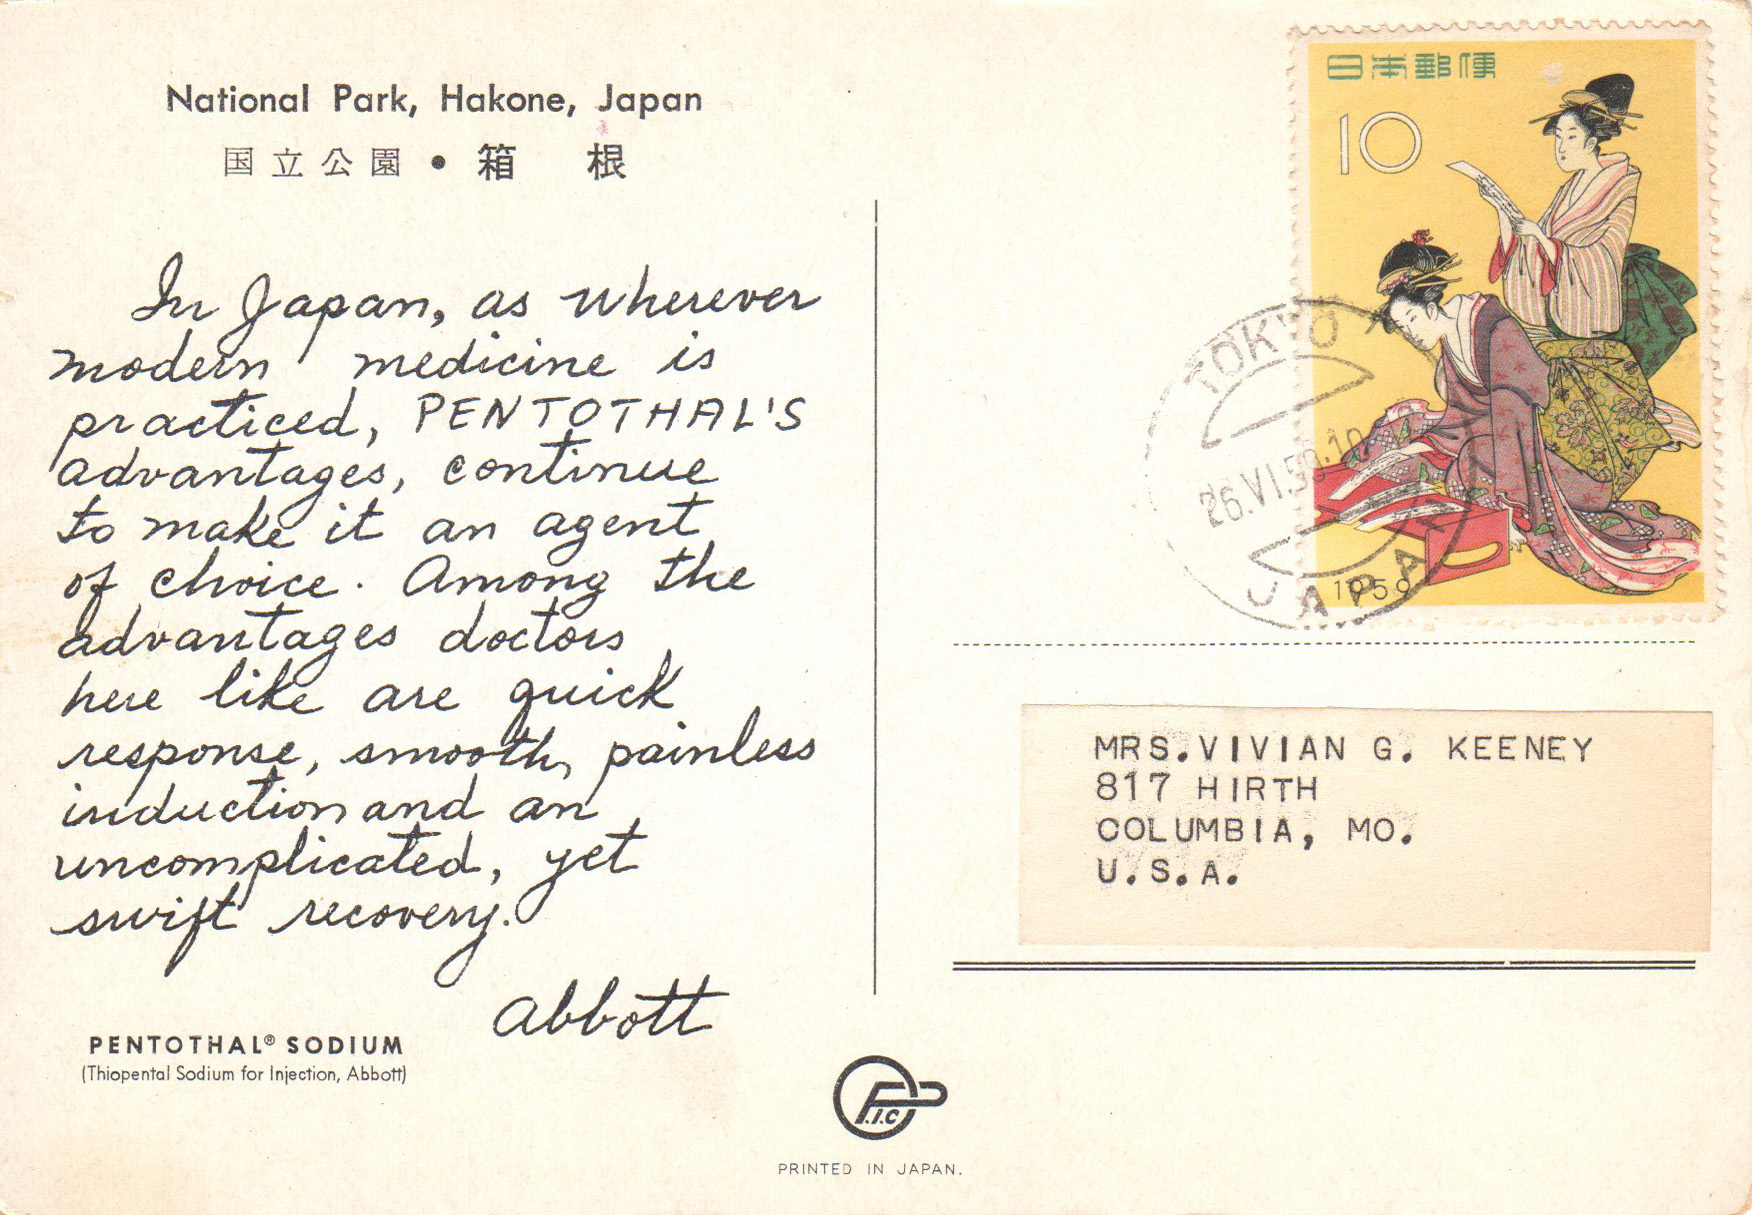 National Park, Hakone, Japan
国立公園・箱根
In Japan, as wherever
modern medicine is
practiced, PENTOTHAL'S
advantages, continue
to make it an agent
of choice. Among the
advantages doctors
here like are quick
response, smooth, painless
induction and an
uncomplicated, yet
swift recovery.
Abbott
PENTOTHAL® SODIUM
(Thiopental Sodium for Injection, Abbott)
P.I.C
PRINTED IN JAPAN.
日本郵便
10
1959
TOKYO
26.VI.59.10
JAPAN
MRS.VIVIAN G. KEENEY
817 HIRTH
COLUMBIA, MO.
U.S.A.